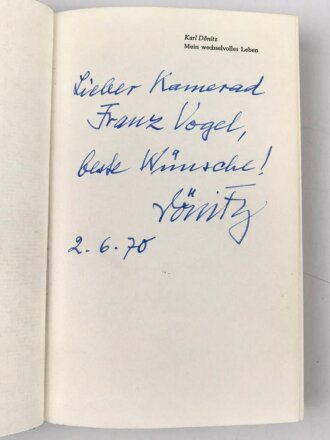 Karl Dönitz
Mein wechselvolles Leben
Lieber Kamerad
Franz Vogel,
beste Wünsche!
Dönitz
2.6.70